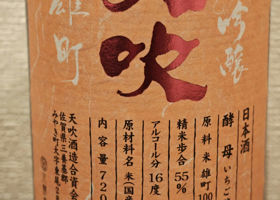 吟醸
雄町
天吹
日本酒
酵母 いちご
原料米 雄町100
精米歩合 55%
アルコール分 16度
原材料名 米(国産
内容量 720
天吹酒造合資会
佐賀県三養基郡
みやき町大字東尾2